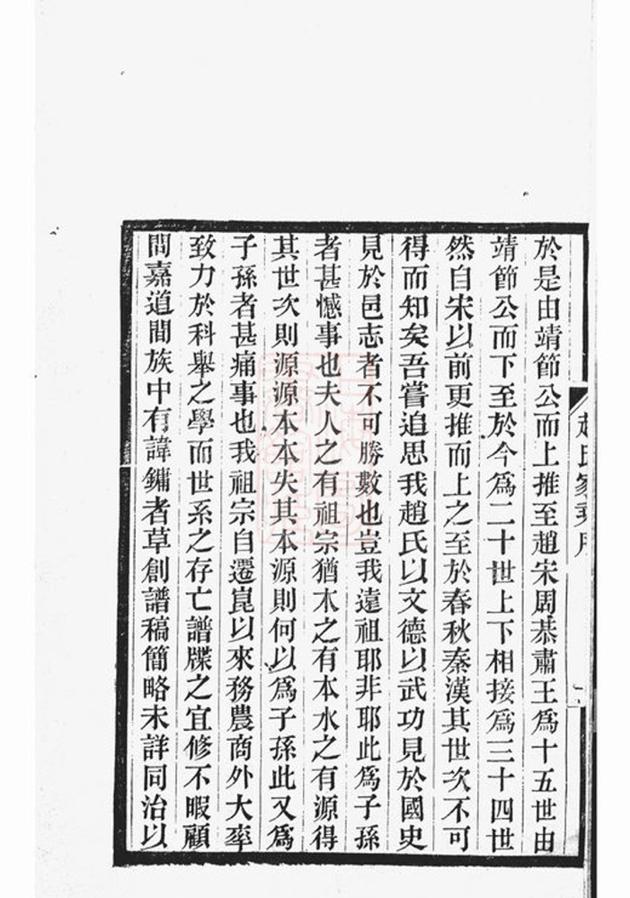 於是由靖節公而上推至趙宋周恭肅王爲十五世由
靖節公而下至於今爲二十世上下相接爲三十四世
然自宋以前更推而上之至於春秋秦漢其世次不可
得而知矣吾嘗追思我趙氏以文德以武功見於國史
見於邑志者不可勝數也豈我遠祖耶非耶此爲子孫
者甚憾事也夫人之有祖宗猶木之有本水之有源得
其世次則源源本本失其本源則何以爲子孫此又爲
子孫者甚痛事也我祖宗自遷崑以來務農商外大率
致力於科舉之學而世系之存亡譜牒之宜修不暇顧
問嘉道間族中有諱鏞者草創譜稿簡略未詳同治以